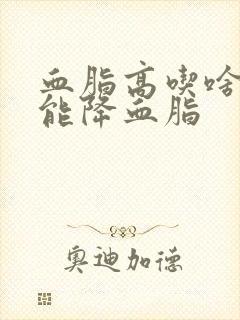 血脂高喫啥
能降血脂
奧迪加德